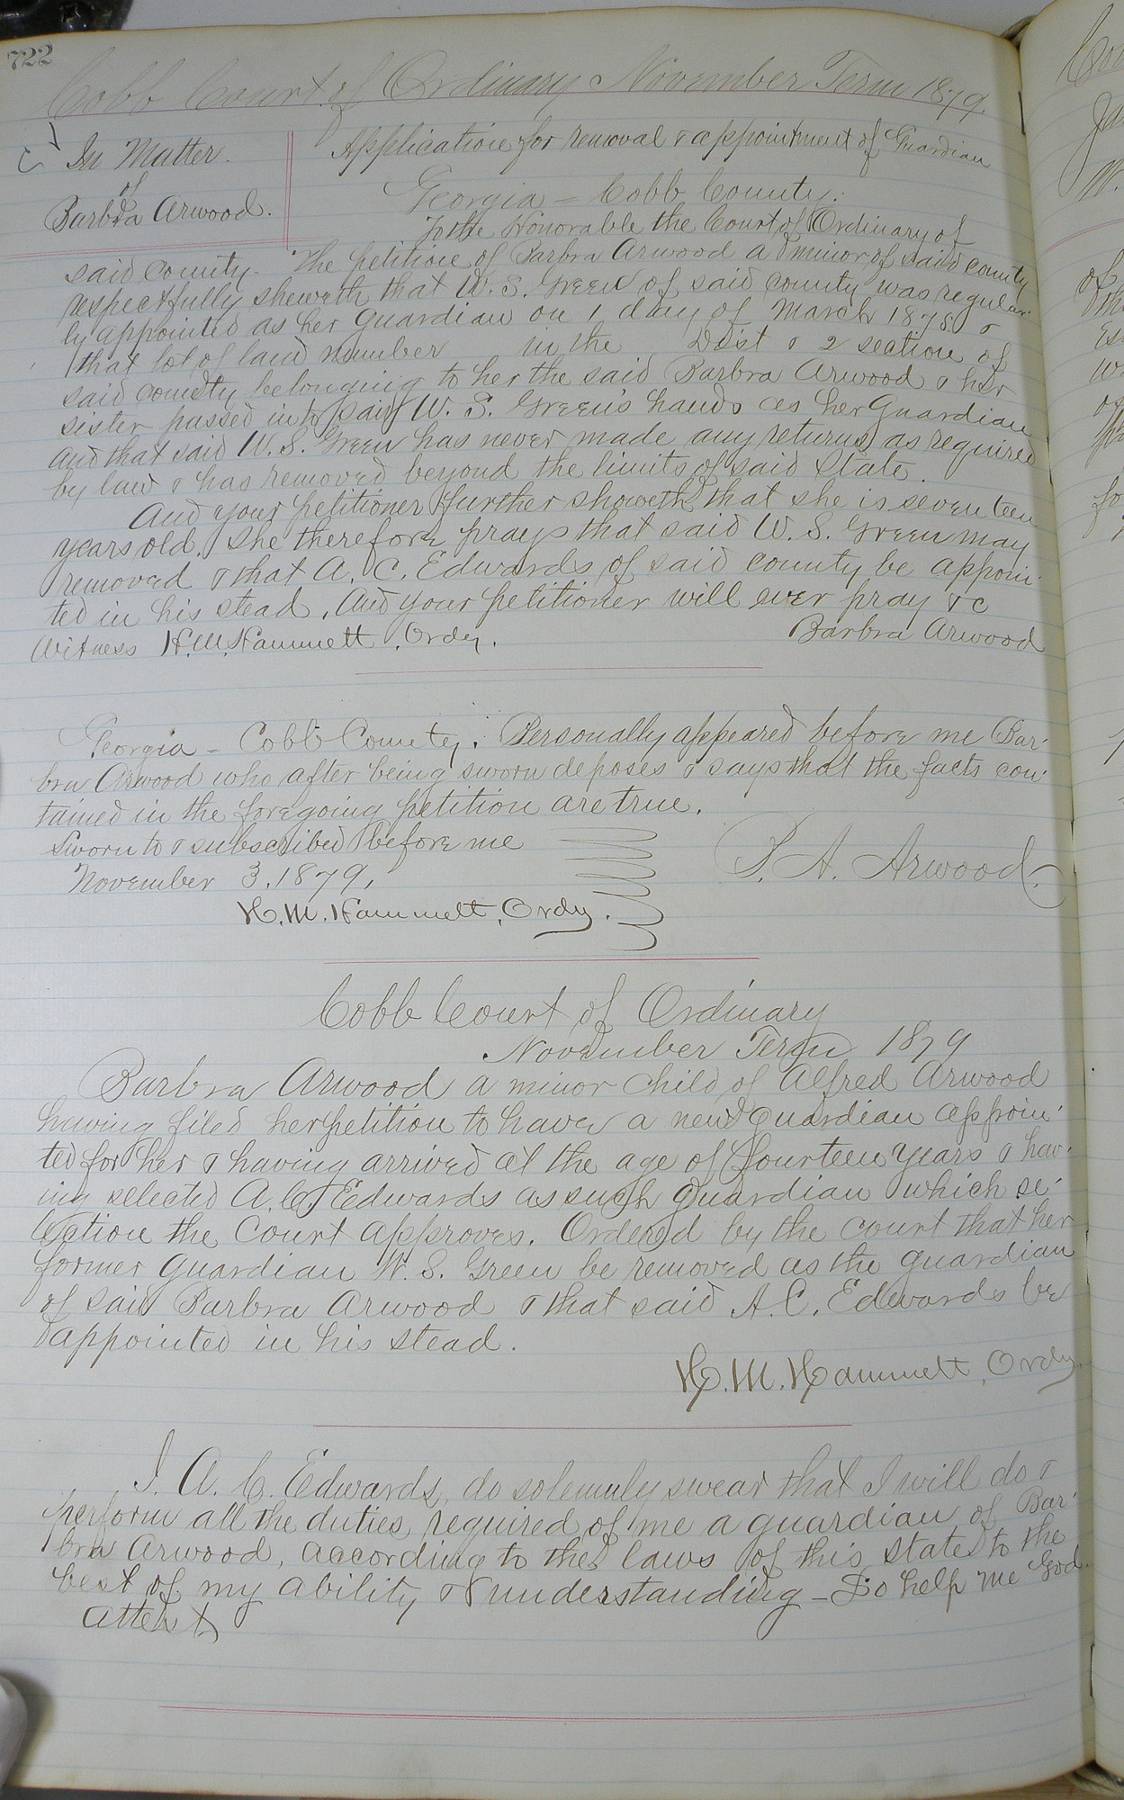 722
Cobb Court of Ordinary November Term 1879.
In Matter
of
Barbra Arwood.
Application for removal & appointment of Guardian
Georgia - Cobb County.
To the Honorable the Court of Ordinary of
said county. The petition of Barbra Arwood a minor of said county
respectfully sheweth that W. S. Green of said county was regular-
ly appointed as her guardian on 1 day of March 1875 &
that lot of land number in the Dist & 2 section of
said county belonging to her the said Barbra Arwood & her
sister passed into said W. S. Green's hands as her Guardian
and that said W. S. Green has never made any returns as required
by law & has removed beyond the limits of said State.
And your petitioner further showeth that she is seventeen
years old. She therefore prays that said W. S. Green may
removed & that A. C. Edwards of said county be appoin-
ted in his stead. And your petitioner will ever pray &c
Witness H. M. Hammett, Ordy. Barbra Arwood
Georgia - Cobb County. Personally appeared before me Bar-
bra Arwood who after being sworn deposes & says that the facts con-
tained in the foregoing petition are true.
Sworn to & subscribed before me
November 3. 1879.
H. M. Hammett, Ordy.
A. Arwood.
Cobb Court of Ordinary
November Term 1879
Barbra Arwood a minor child of Alfred Arwood
having filed her petition to have a new guardian appoin-
ted for her & having arrived at the age of fourteen years & hav-
ing selected A. C. Edwards as such guardian which se-
lection the Court approves. Ordered by the court that her
former guardian W. S. Green be removed as the guardian
of said Barbra Arwood & that said A. C. Edwards be
appointed in his stead.
H. M. Hammett, Ordy.
I. A. C. Edwards, do solemnly swear that I will do &
perform all the duties required of me a guardian of Bar-
bra Arwood, according to the laws of this State to the
best of my ability & understanding - So help me God.
Attest